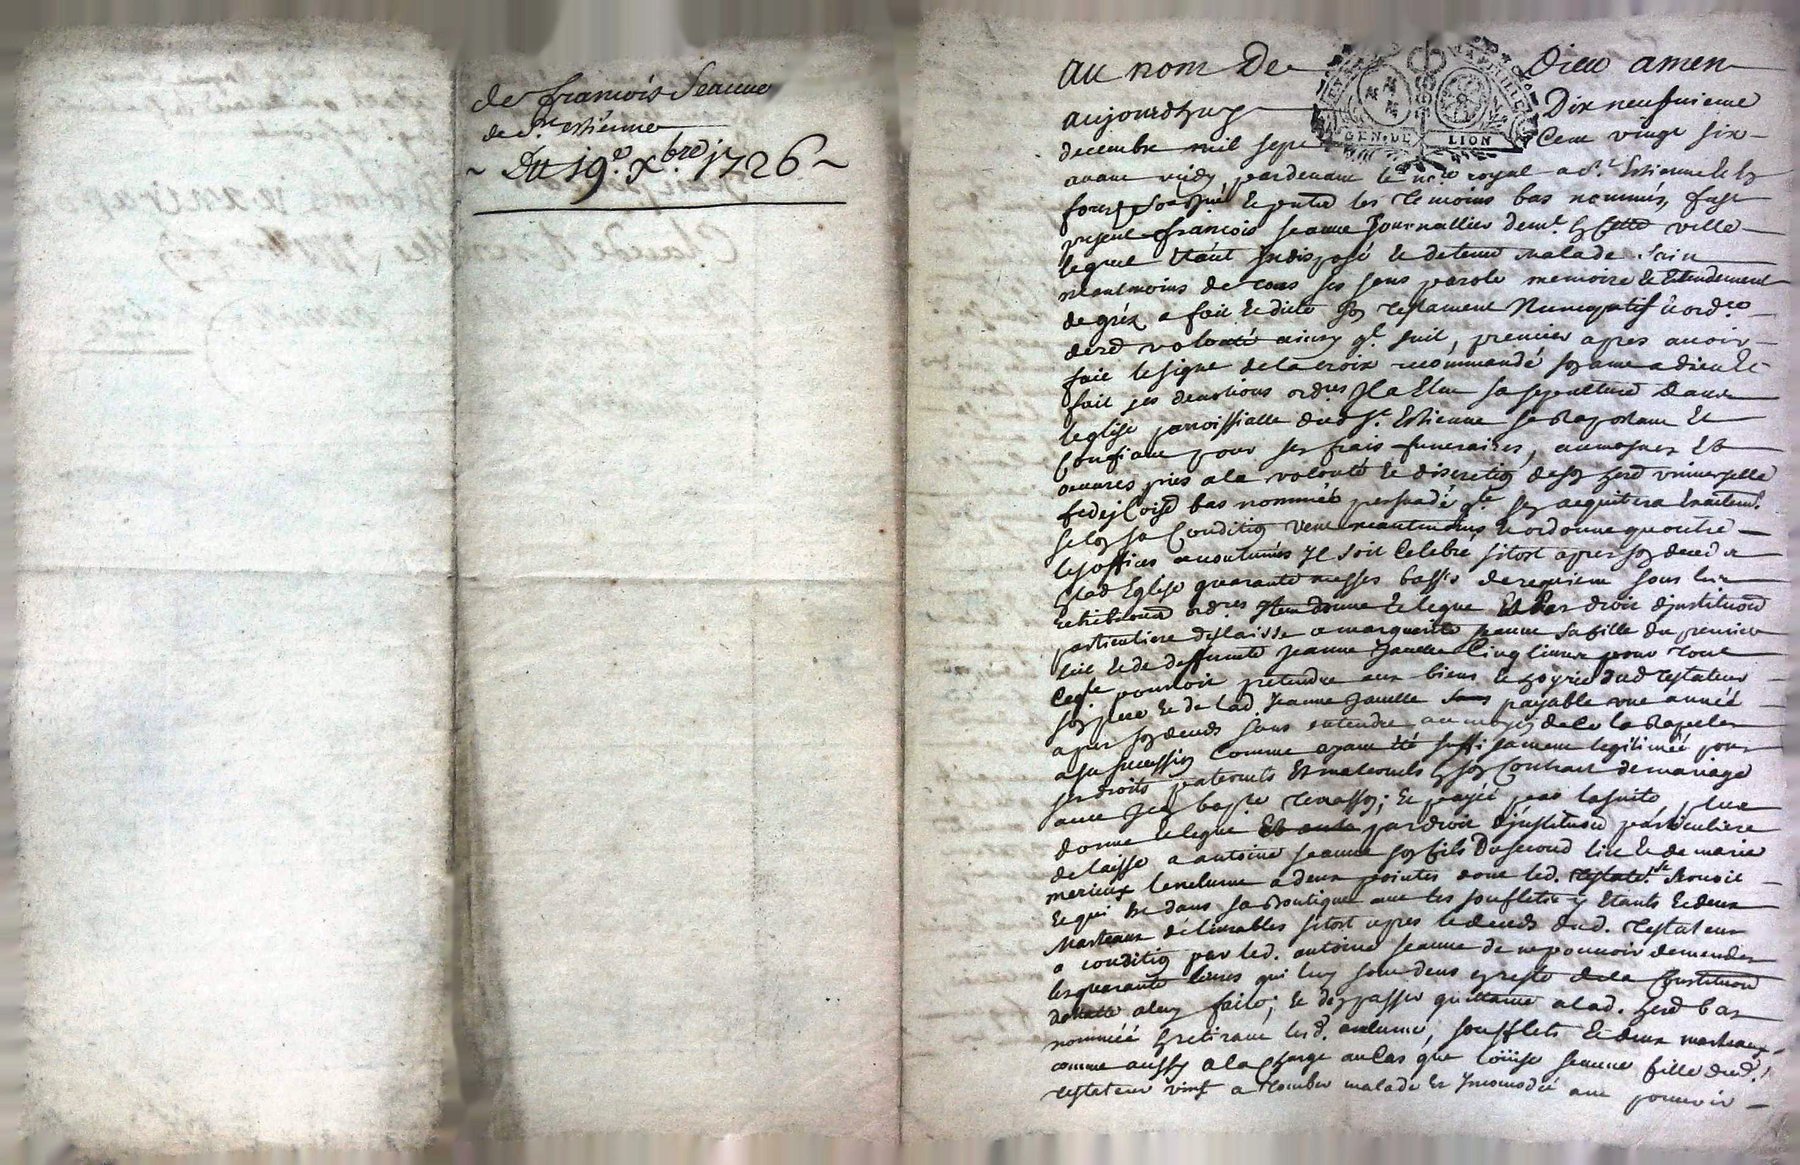 de francois Jeanne
de St estienne
~ Du 19e. Xbre 1726 ~
au nom De Dieu amen
aujourdhuy Dix neufuieme
GEN.DE LION
decembre mil sept Cent vingt six
auant midy pardeuant le nore royal a St. Estienne
soussigné et presents les temoins bas nommés, fust
present francois Jeanne Journallier demt. en Cette ville
lequel Etant Indisposé et detenu malade sain
neantmoins de tous ses sens parole memoire et Entendement
de gréz a fait et dicté son testament Nuncupatif et ordre
derre volonté ainsy ql. suit, premier apres auoir
fait le signe de la croix recommandé son ame a dieu et
fait ses deuotions ordres Il a Eleu sa sepulture Dans
leglise parroissialle dud St. Estienne se Raportant Et
Confiant pour ses frais funeraires, aumosnes Et
oeuures pies a la volonté et discretion de son herre vniuerselle
bas nommée persuadé qle. sen aquittera
selon sa Condition veut neantmoins et ordonne quoutre
les offices acoutumés Il soit Celebré sitost apres son deceds
en lad Eglise quarante messes basses de requiem sous leur
retribuon ordres Item donne et legue Et Par droit dinstituon
particuliere delaisse a marguerite Jeanne sa fille du premier
lit et de deffunte Jeanne Cinq liures pour tout
Ceqle. pourroit pretendre aux biens et hoyrie dud testateur
son pere et de lad. Jeanne payable une année
apres son deceds sans entendre au moyen de ce la Rapeller
a sa succession Comme ayant été suffisamment legitimée pour
ses droits paternels Et maternels en son Contrat de mariage
auec Jean bapte terrasson; et payée par la suitte, plus
donne et legue Et par droit dinstituon particuliere
delaisse a antoine Jeanne son fils Du second lit et de marie
merieux lenclume a deux pointes dont led. testatr. se
et qui Est dans sa Boutique auec les soufflets y Etants et deux
Marteaux deliurables sitost apres le deceds dud. testateur
a condition par led. antoine Jeanne de ne pouuoir demander
les quarante liures qui luy sont deus en reste de la Constituon
a luy faite; et den passer quittance a lad. herre bas
nommée En retirant lesd. anclume, soufflets et deux marteaux
comme aussy a la charge au Cas que Loüise Jeanne fille dud.
testateur vint a tomber malade et Incomodée sans pouuoir